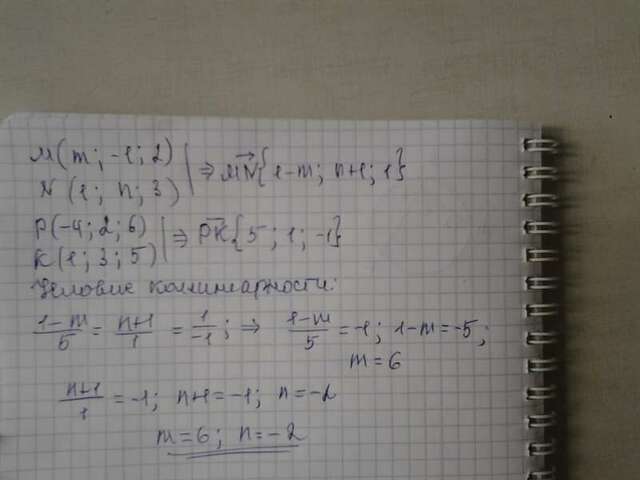 M(m; -1; 2)
N(1; n; 3) | ⇒ MN{1-m; n+1; 1}
P(-4; 2; 6)
K(1; 3; 5) | ⇒ PK{5; 1; -1}
Условие коллинеарности:
(1-m)/5 = (n+1)/1 = 1/-1; ⇒ (1-m)/5 = -1; 1-m = -5;
m = 6
(n+1)/1 = -1; n+1 = -1; n = -2
m = 6; n = -2